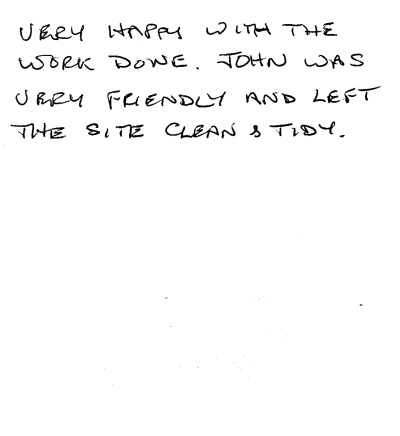 VERY HAPPY WITH THE
WORK DONE. JOHN WAS
VERY FRIENDLY AND LEFT
THE SITE CLEAN & TIDY.